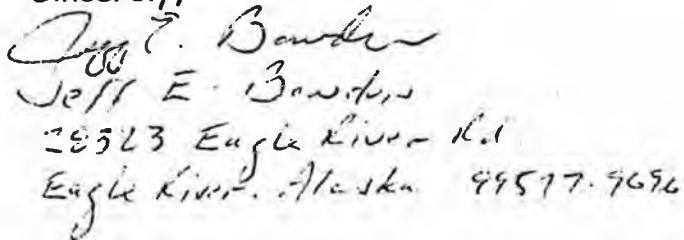 Jeff E. Bowden
Jeff E. Bowden
28523 Eagle River Rd
Eagle River, Alaska 99577-9696